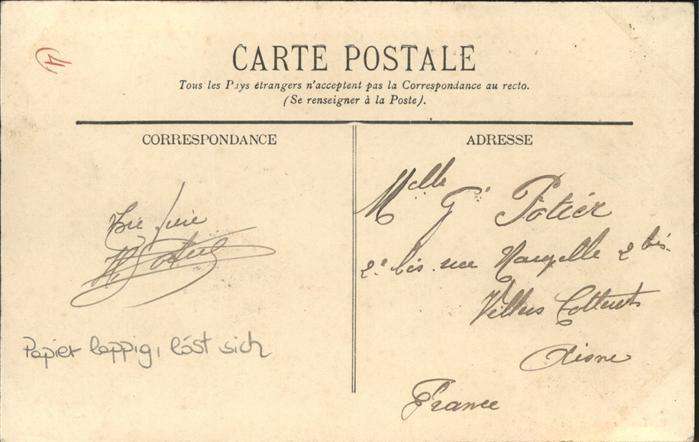 4
CARTE POSTALE
Tous les Pays étrangers n'acceptent pas la Correspondance au recto.
(Se renseigner à la Poste).
CORRESPONDANCE
ADRESSE
Melle G Potier
2 bis rue 2 bis
Villers Cotterets
Aisne
France
Papier lappig, löst sich